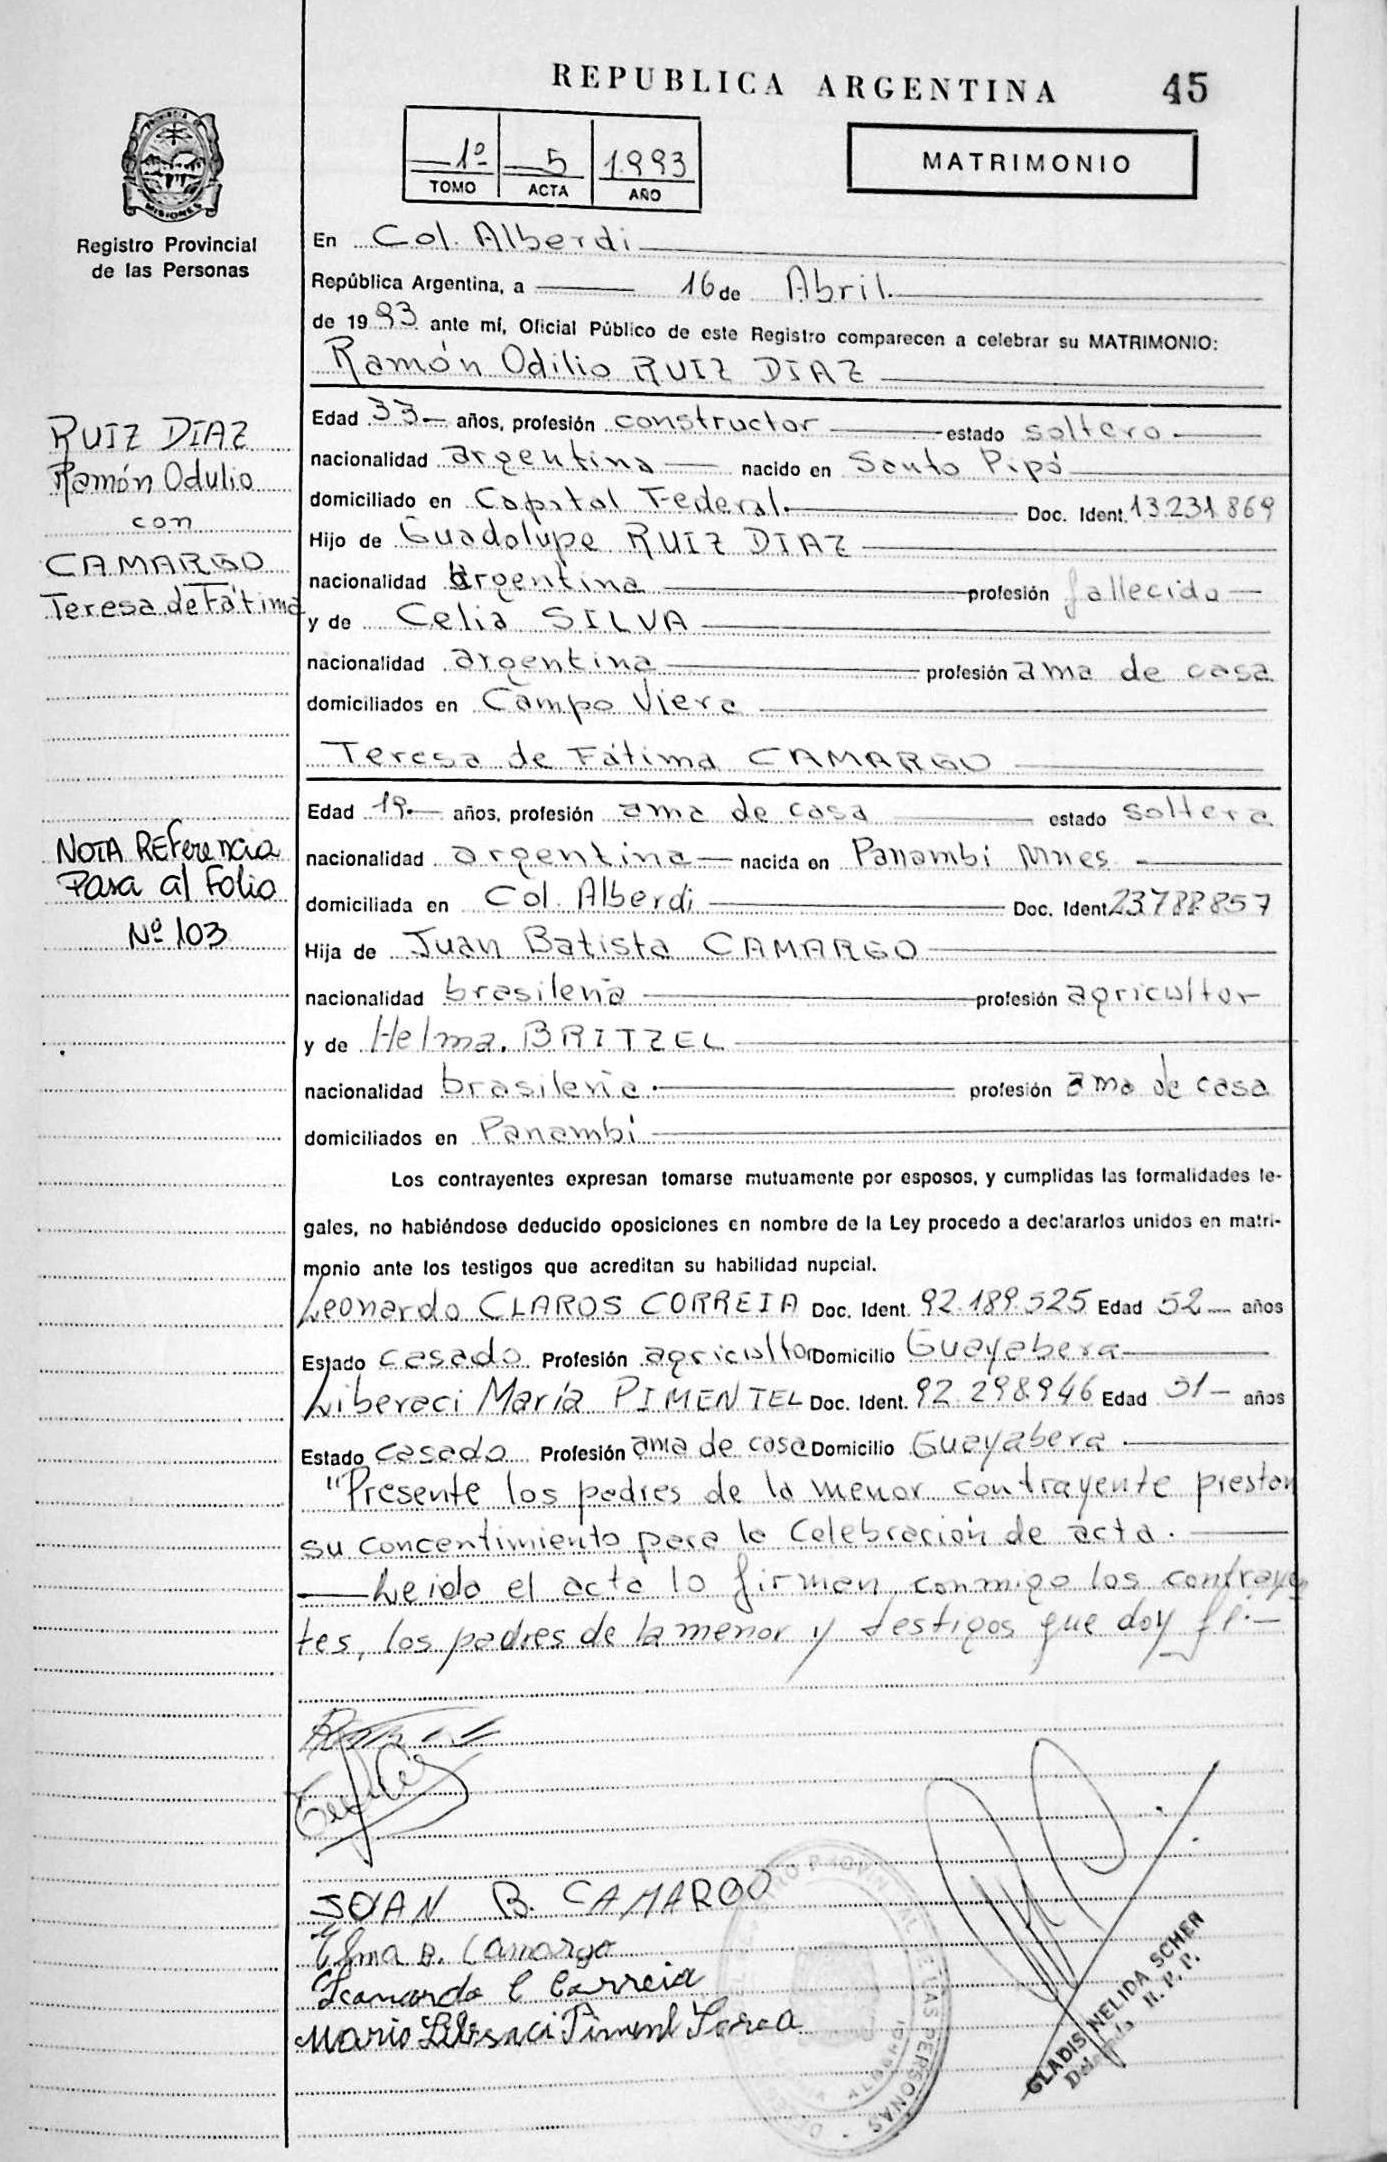 REPUBLICA ARGENTINA 45
MISIONES
Registro Provincial
de las Personas
1º 5 1993
TOMO ACTA AÑO
MATRIMONIO
En Col. Alberdi
República Argentina, a 16 de Abril
de 1993 ante mí, Oficial Público de este Registro comparecen a celebrar su MATRIMONIO:
Ramón Odilio RUIZ DIAZ
RUIZ DIAZ
Ramón Odulio
con
CAMARGO
Teresa de Fátima
Edad 33 años, profesión constructor estado soltero
nacionalidad argentina nacido en Santo Pipó
domiciliado en Capital Federal. Doc. Ident. 13.231.869
Hijo de Guadalupe RUIZ DIAZ
nacionalidad argentina profesión fallecido
y de Celia SILVA
nacionalidad argentina profesión ama de casa
domiciliados en Campo Viera
Teresa de Fátima CAMARGO
NOTA Referencia
Pasa al Folio
Nº 103
Edad 19 años, profesión ama de casa estado soltera
nacionalidad argentina nacida en Panambí Mnes
domiciliada en Col. Alberdi Doc. Ident. 23.788.857
Hija de Juan Batista CAMARGO
nacionalidad brasileña profesión agricultor
y de Helma. BRITZEL
nacionalidad brasileña profesión ama de casa
domiciliados en Panambí
Los contrayentes expresan tomarse mutuamente por esposos, y cumplidas las formalidades le-
gales, no habiéndose deducido oposiciones en nombre de la Ley procedo a declararlos unidos en matri-
monio ante los testigos que acreditan su habilidad nupcial.
Leonardo CLAROS CORREIA Doc. Ident. 92.189.525 Edad 52 años
Estado casado Profesión agricultor Domicilio Guayabera
Liberaci María PIMENTEL Doc. Ident. 92.298.946 Edad 51 años
Estado casado Profesión ama de casa Domicilio Guayabera
"Presente los padres de la menor contrayente prestan
su concentimiento para la Celebración de acta.
Leida el acta lo firman conmigo los contrayen
tes, los padres de la menor y testigos que doy fé.
JOAN B. CAMARGO
Elma B. Camargo
Leonardo C Correia
GLADIS NELIDA SCHER
Delegada R. P. P.
PERSONAS
ALBERDI